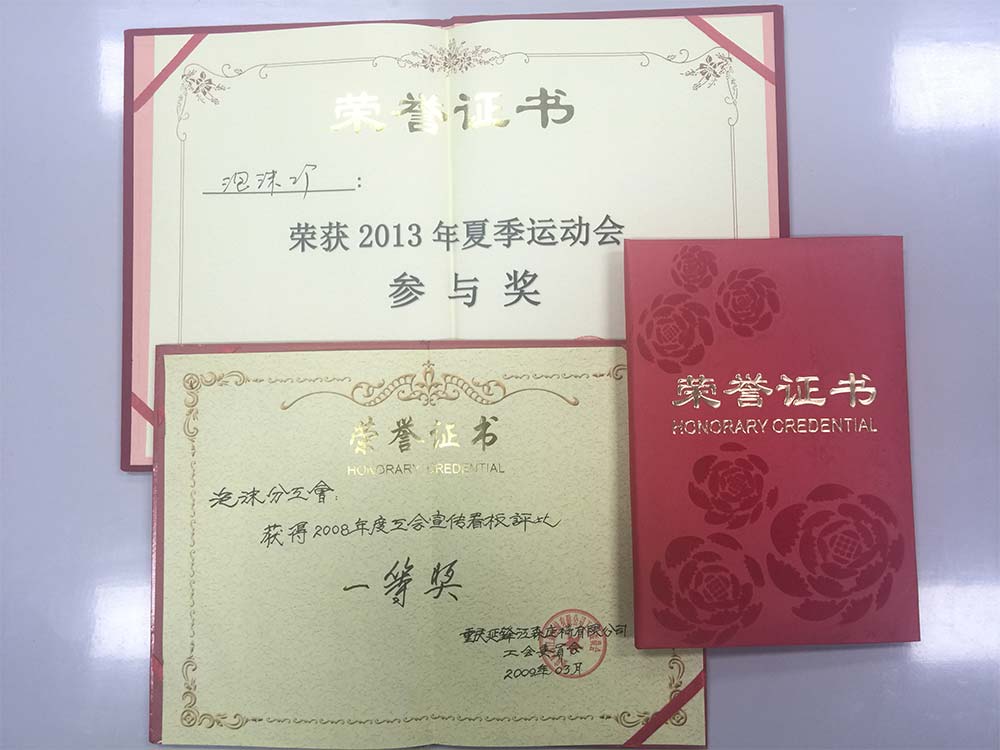 荣誉证书
泡沫厂:
荣获 2013 年夏季运动会
参与奖
荣誉证书
HONORARY CREDENTIAL
泡沫分工會:
获得2008年度工会宣传看板評比
一等奖
重庆延锋江森座椅有限公司
工会委员会
2009年03月
荣誉证书
HONORARY CREDENTIAL